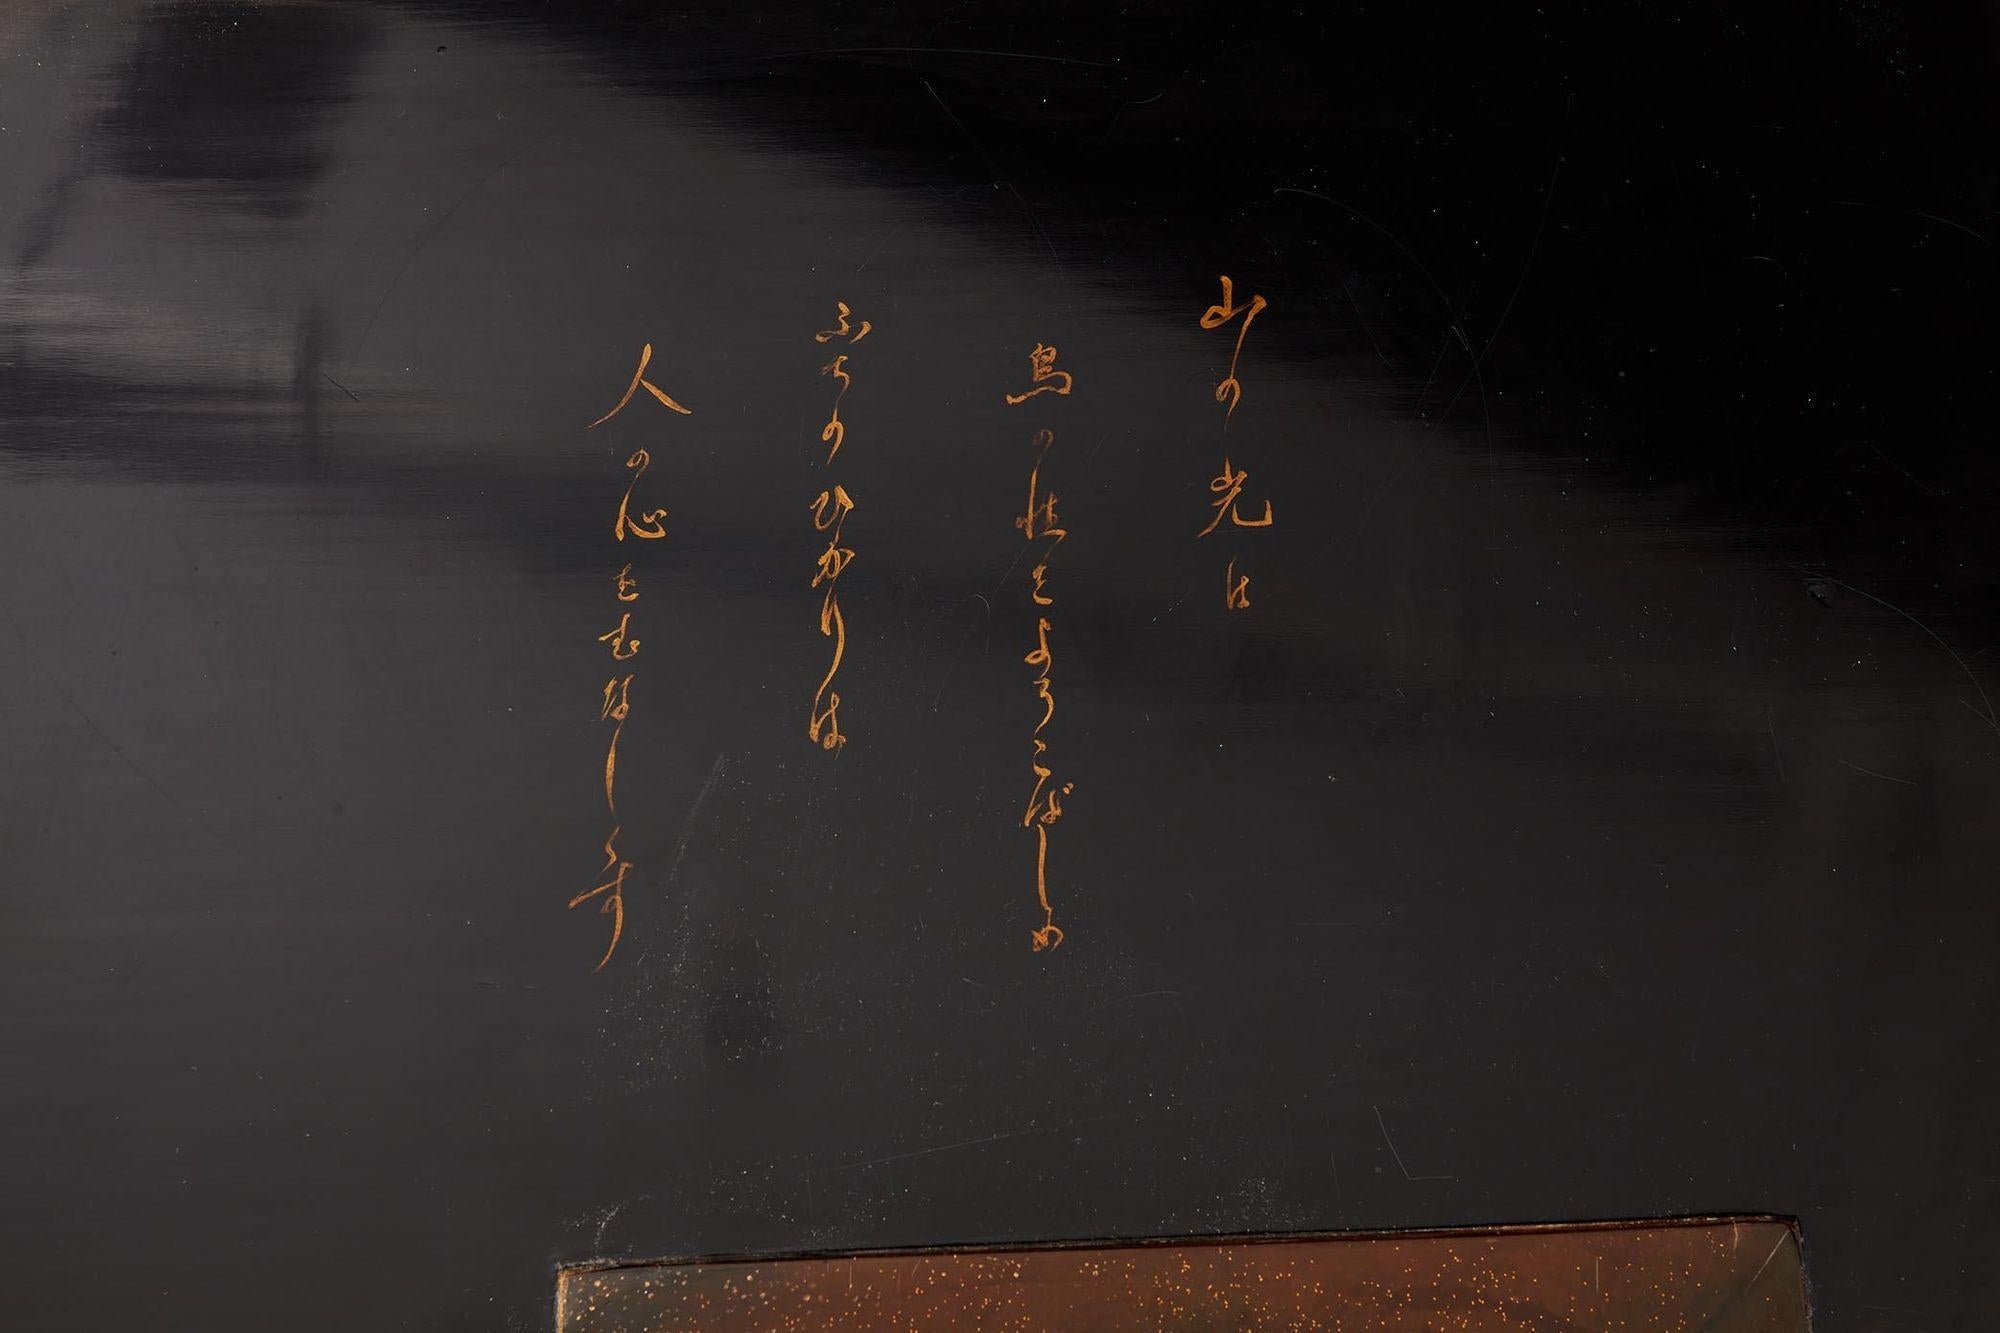 山の光は
鳥の性をよろこばしめ
ふちのひかりは
人の心をむなしくす